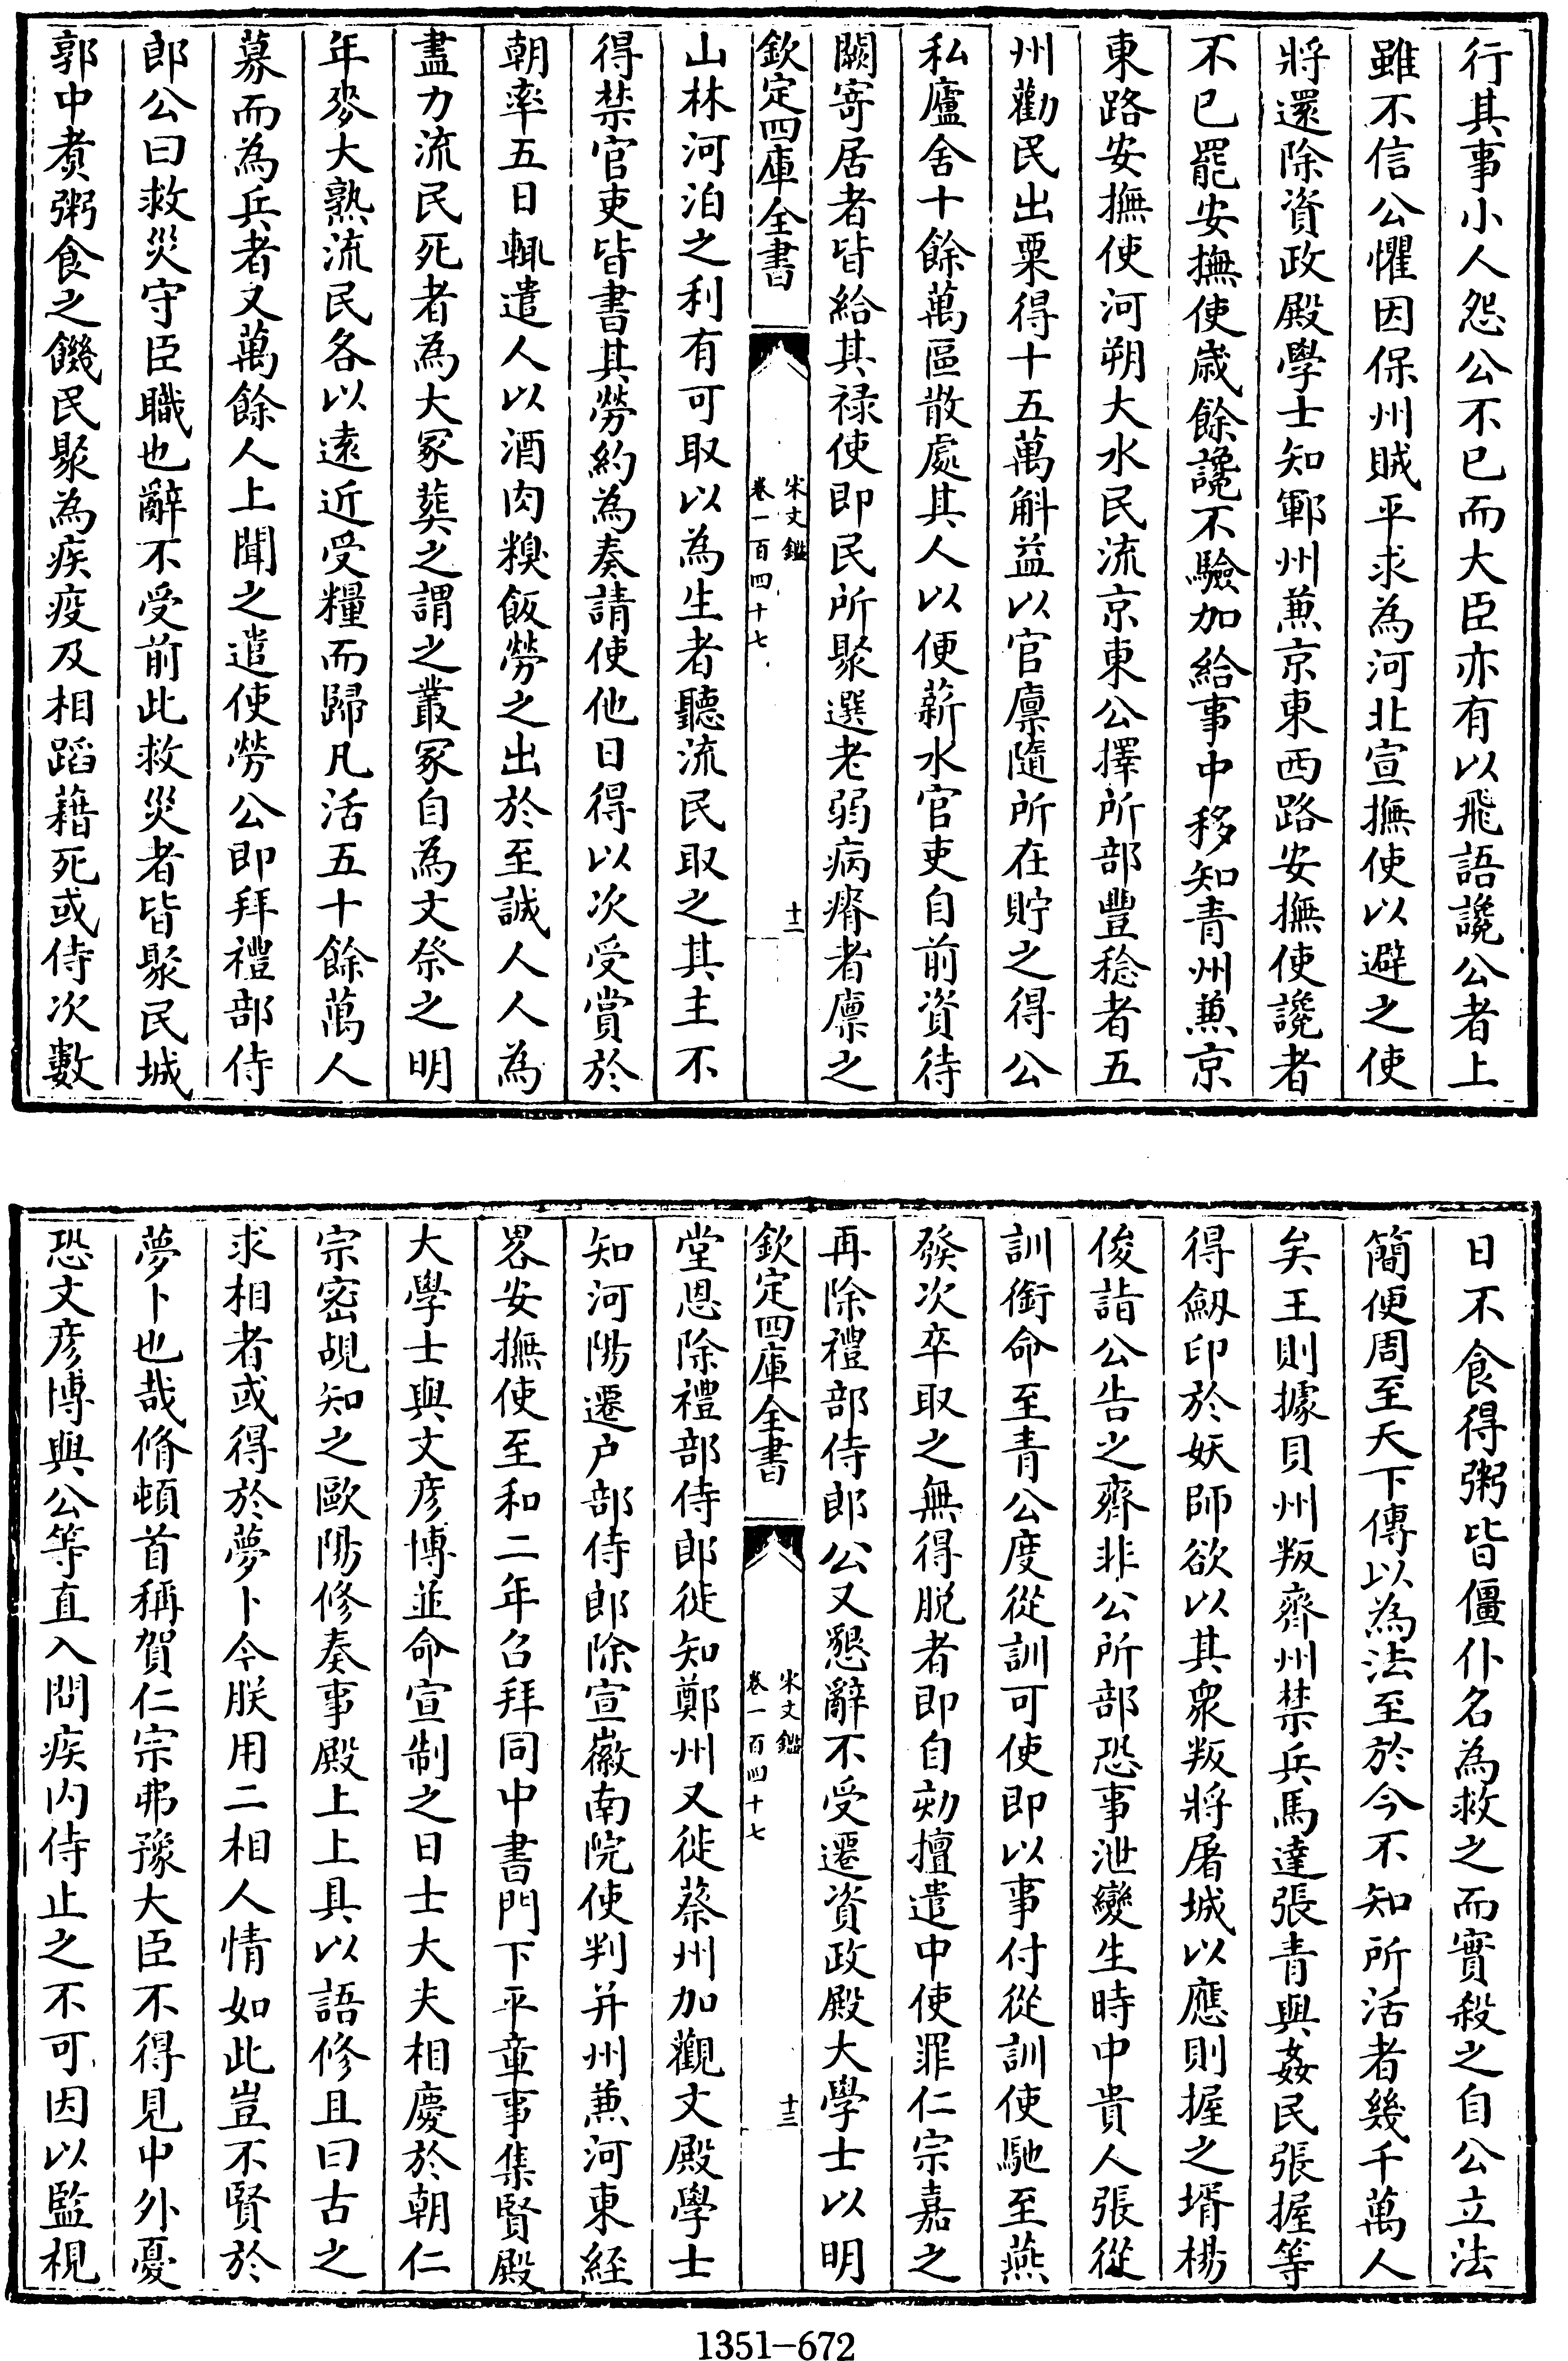 行其事小人怨公不已而大臣亦有以飛語讒公者上
雖不信公懼因保州賊平求為河北宣撫使以避之使
將還除資政殿學士知鄆州兼京東西路安撫使讒者
不已罷安撫使歲餘讒不驗加給事中移知青州兼京
東路安撫使河朔大水民流京東公擇所部豐稔者五
州勸民出粟得十五萬斛益以官廪隨所在貯之得公
私廬舍十餘萬區散處其人以便薪水官吏自前資待
闕寄居者皆給其禄使即民所聚選老弱病瘠者廪之
欽定四庫全書
宋文鑑
卷一百四十七
十二
山林河泊之利有可取以為生者聽流民取之其主不
得禁官吏皆書其勞約為奏請使他日得以次受賞於
朝率五日輒遣人以酒肉糗飯勞之出於至誠人人為
盡力流民死者為大冢葬之謂之叢冢自為文祭之明
年麥大熟流民各以遠近受糧而歸凡活五十餘萬人
募而為兵者又萬餘人上聞之遣使勞公即拜禮部侍
郎公曰救災守臣職也辭不受前此救災者皆聚民城
郭中煮粥食之饑民聚為疾疫及相蹈藉死或待次數
日不食得粥皆僵仆名為救之而實殺之自公立法
簡便周至天下傳以為法至於今不知所活者幾千萬人
矣王則據貝州叛齊州禁兵馬達張青與姦民張握等
得劔印於妖師欲以其衆叛將屠城以應則握之壻楊
俊詣公告之齊非公所部恐事泄變生時中貴人張從
訓銜命至青公度從訓可使即以事付從訓使馳至燕
發次卒取之無得脱者即自劾擅遣中使罪仁宗嘉之
再除禮部侍郎公又懇辭不受遷資政殿大學士以明
欽定四庫全書
宋文鑑
卷一百四十七
十三
堂恩除禮部侍郎徙知鄭州又徙蔡州加觀文殿學士
知河陽遷户部侍郎除宣徽南院使判并州兼河東經
畧安撫使至和二年召拜同中書門下平章事集賢殿
大學士與文彦博並命宣制之日士大夫相慶於朝仁
宗密覘知之歐陽修奏事殿上上具以語修且曰古之
求相者或得於夢卜今朕用二相人情如此豈不賢於
夢卜也哉脩頓首稱賀仁宗弗豫大臣不得見中外憂
恐文彦博與公等直入問疾内侍止之不可因以監視
1351-672